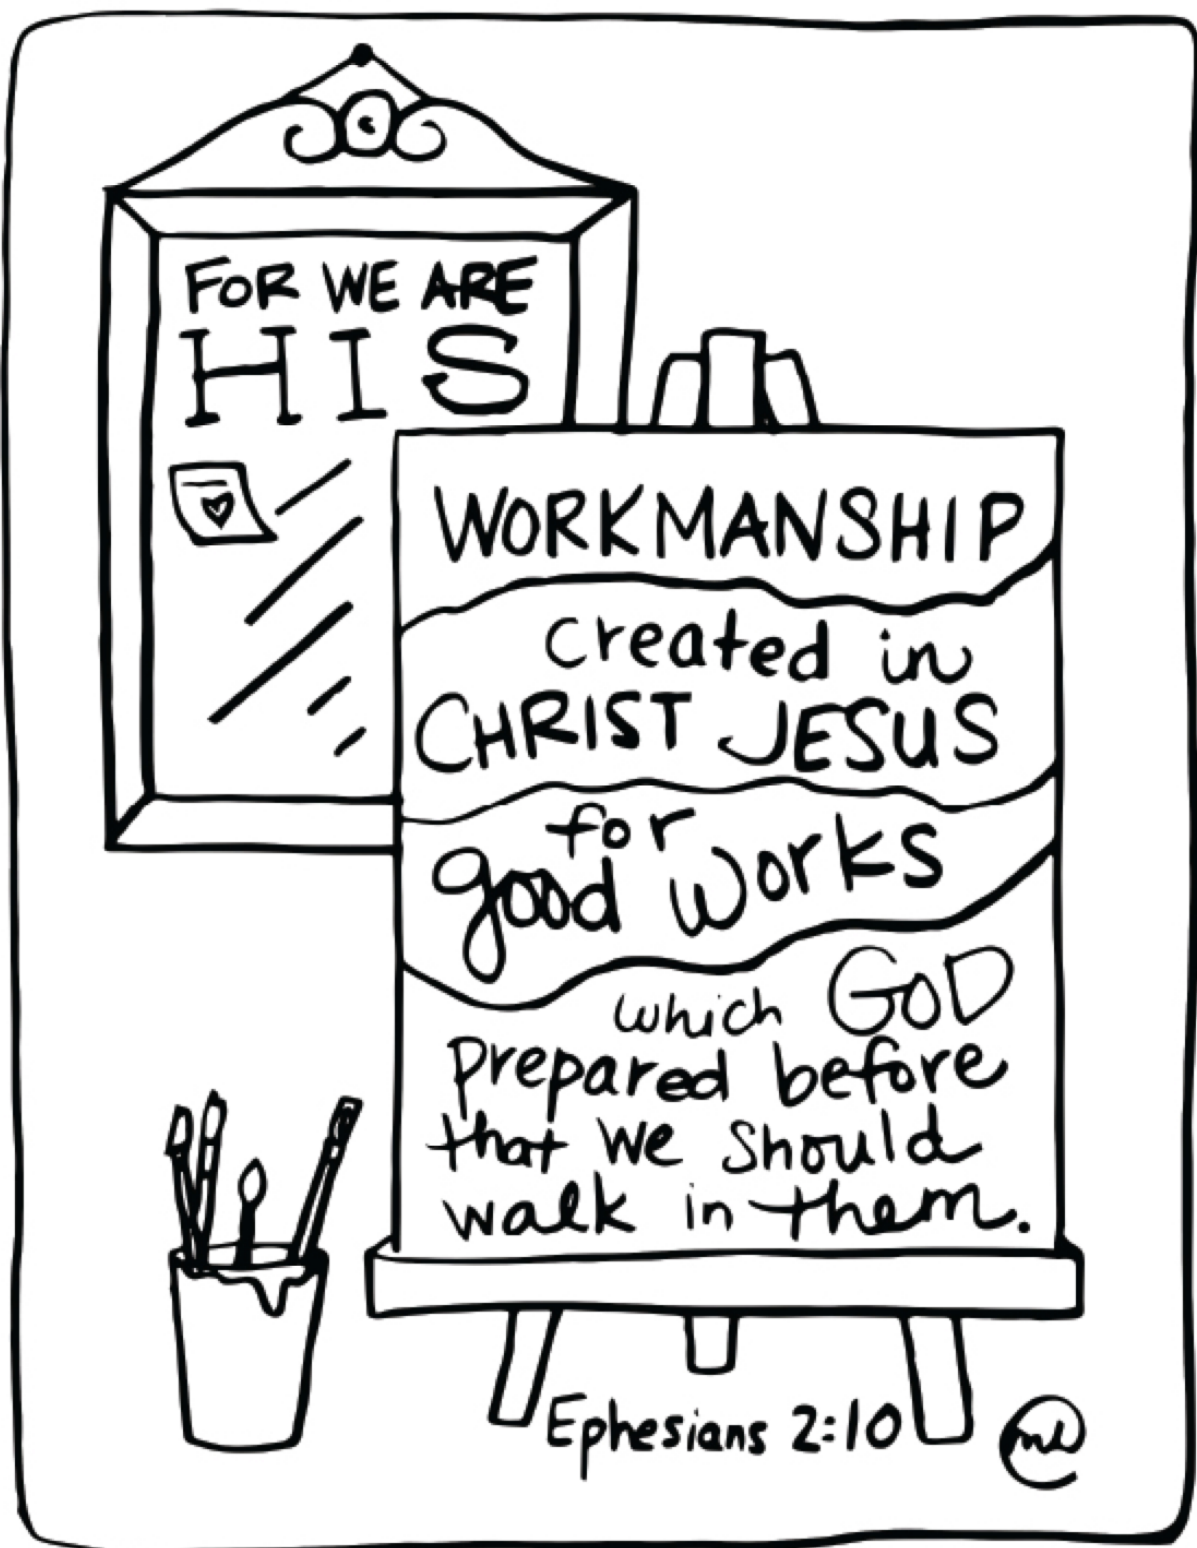 FOR WE ARE
HIS
WORKMANSHIP
created in
CHRIST JESUS
for
good works
which GOD
prepared before
that we should
walk in them.
Ephesians 2:10